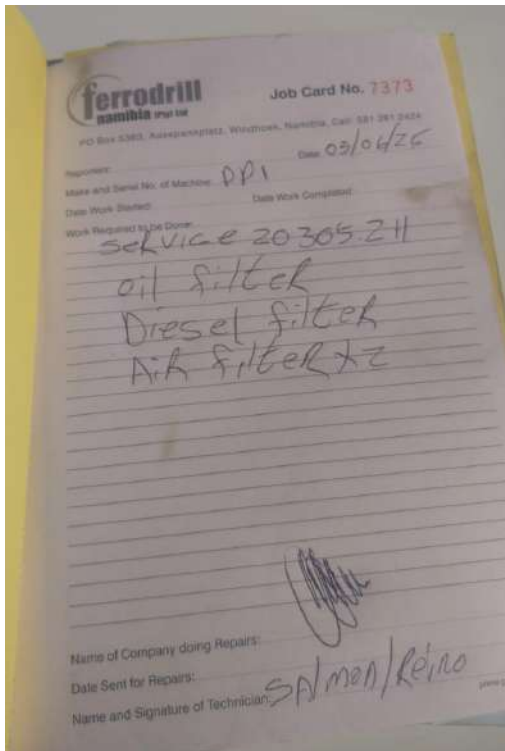 ferrodrill
namibia (Pty) Ltd
Job Card No. 7373
PO Box 5363, Ausspannplatz, Windhoek, Namibia, Cell: 081 281 2424
Date: 03/06/25
Make and Serial No. of Machine: PP1
Date Work Started: Date Work Completed:
Work Required to be Done:
Service 20305.2H
oil filter
Diesel filter
Air filter x2
Name of Company doing Repairs:
Date Sent for Repairs:
Name and Signature of Technician: Salmon/Reino